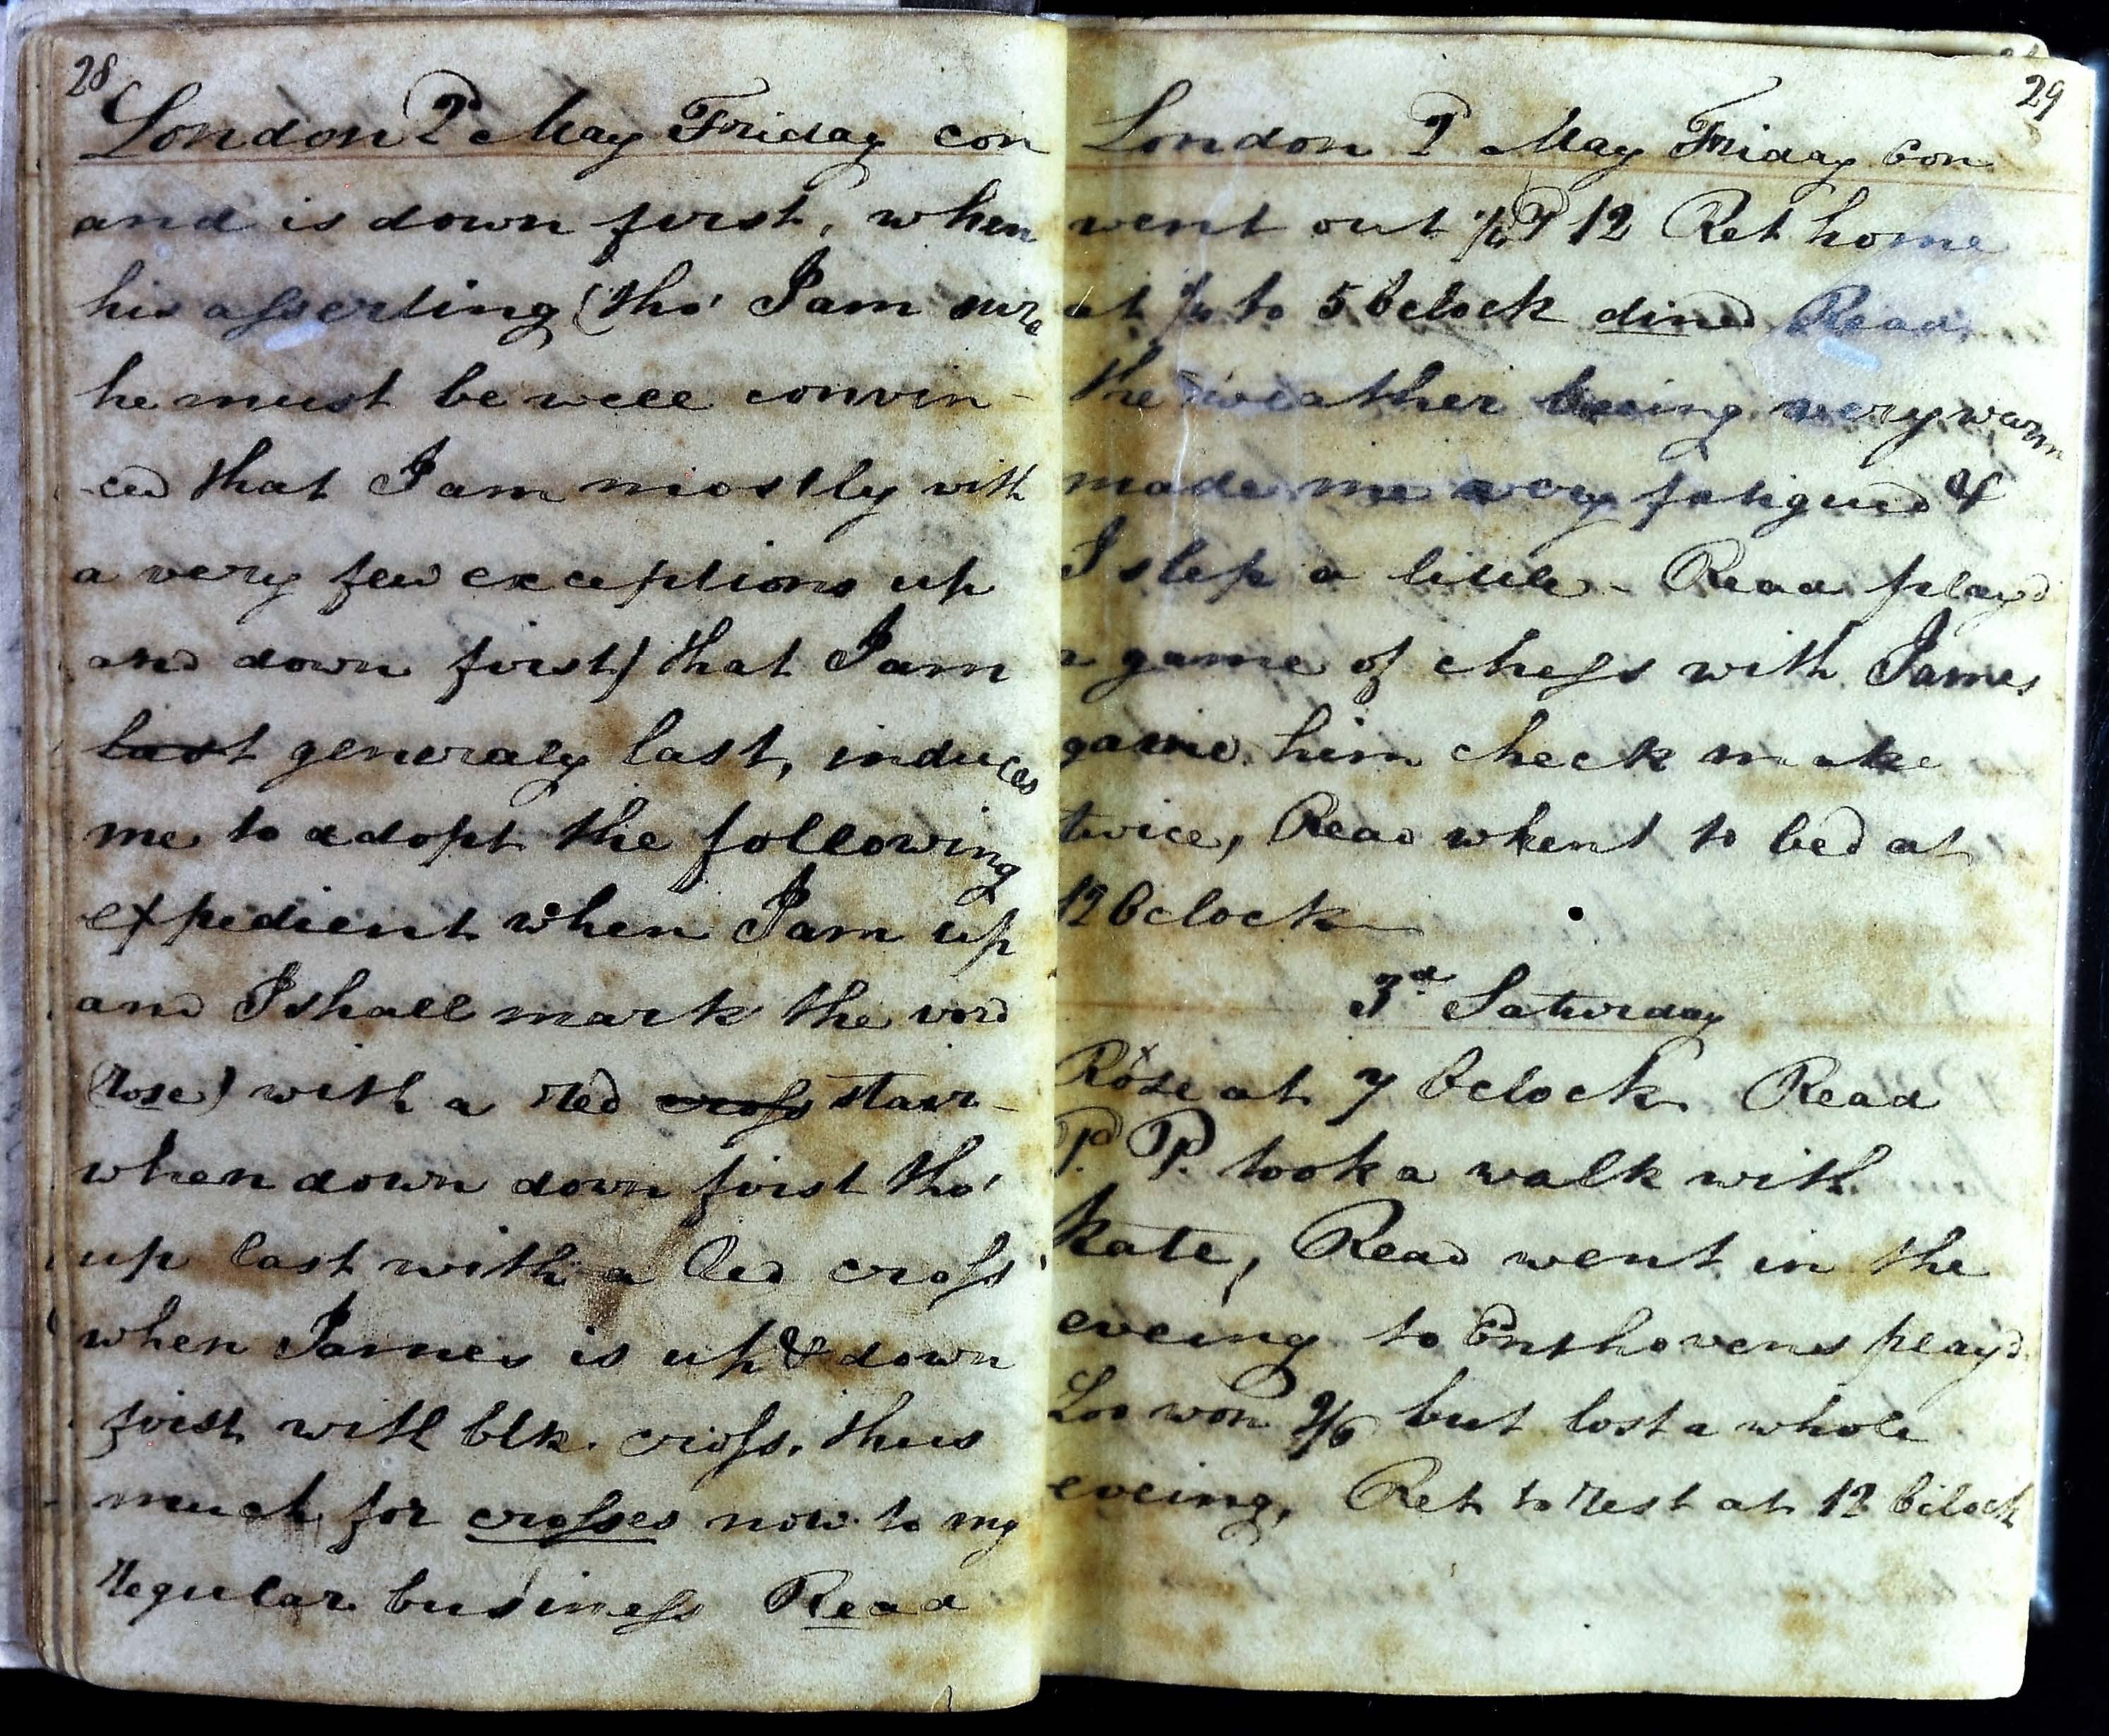 28
London 2d May Friday con
and is down first, when
his asserting (tho' I am sure
he must be well convin-
-ced that I am mostly with
a very few exceptions up
and down first) that I am
last generaly last, induces
me to adopt the following
expedient when I am up
and I shall mark the word
(rose) with a red cross starr-
when down down first tho'
up last with a Red cross
when James is up & down
first with blk. cross. thus
much for crosses now to my
regular business Read
29
London 2 May Friday Con
went out 1/2 P 12 Ret home
at 1/4 to 5 Oclock dined Read,
the weather being very warm
made me very fatigued &
I slep a little - Read play'd
a game of chess with James
gave him check mate
twice, Read whent to bed at
12 Oclock
3d Saturday
Rose at 7 Oclock Read
P. P. took a walk with
Kate, Read went in the
eveing to Enthovens play'd
Loo won 2/6 but lost a whole
eveing, Ret to rest at 12 Oclock